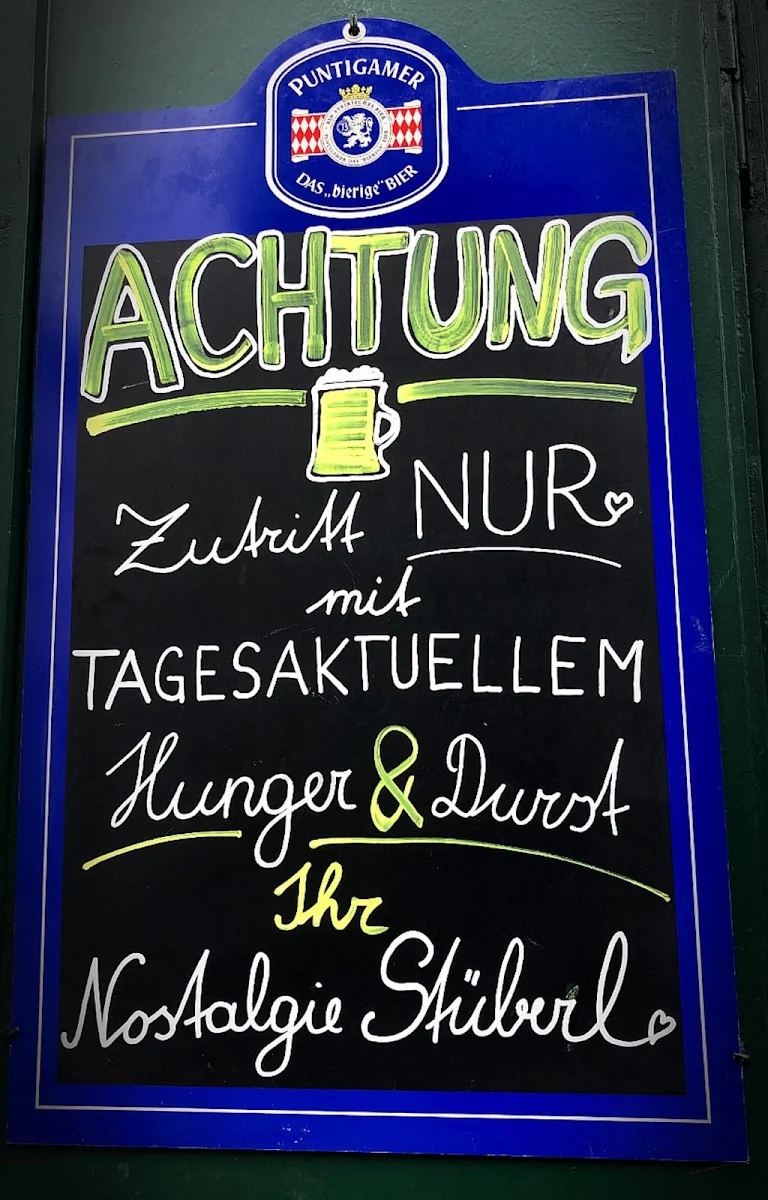 PUNTIGAMER
DAS „bierige“ BIER
ACHTUNG
Zutritt NUR
mit
TAGESAKTUELLEM
Hunger & Durst
Ihr
Nostalgie Stüberl